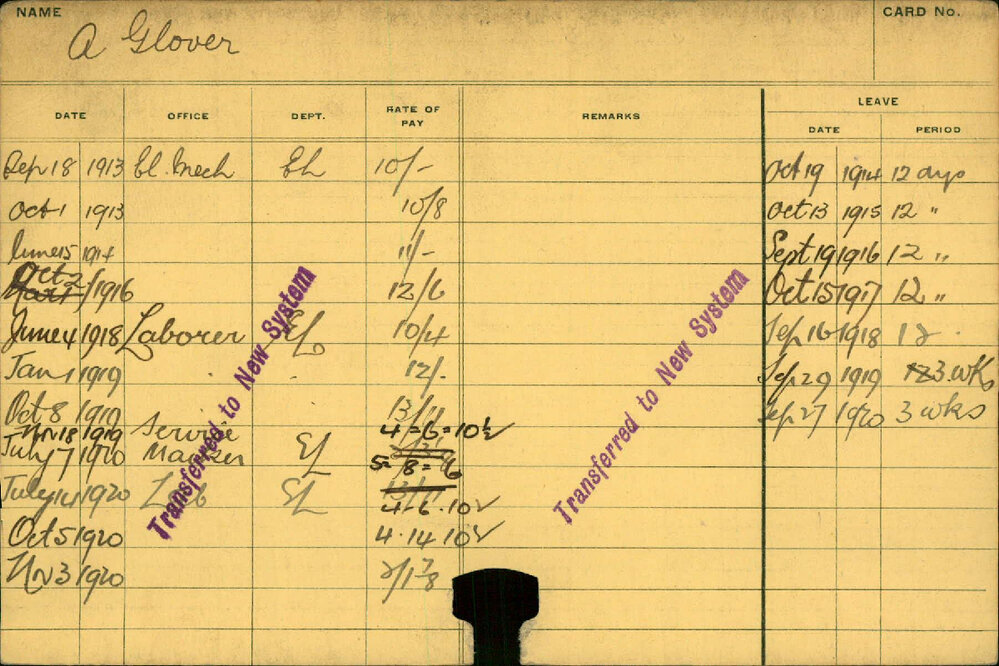 NAME CARD No.
A Glover
LEAVE
DATE OFFICE DEPT. RATE OF PAY REMARKS DATE PERIOD
Sep 18 1913 El. Mech El 10/- Oct 19 1914 12 days
Oct 1 1913 10/8 Oct 13 1915 12 "
June 15 1914 11/- Sept 19 1916 12 "
Oct 2 1916 12/6 Oct 15 1917 12 "
June 4 1918 Laborer EL 10/4 Sep 16 1918 12
Jan 1 1919 12/- Sep 29 1919 3 wks
Oct 8 1919 13/11 Sep 27 1920 3 wks
Nv 18 1919 Service 4=6=10½
July 7 1920 EL 5=8=6
July 14 1920 Lab EL 4-6-10½
Oct 5 1920 4.14.10½
Nv 3 1920
Transferred to New System
Transferred to New System